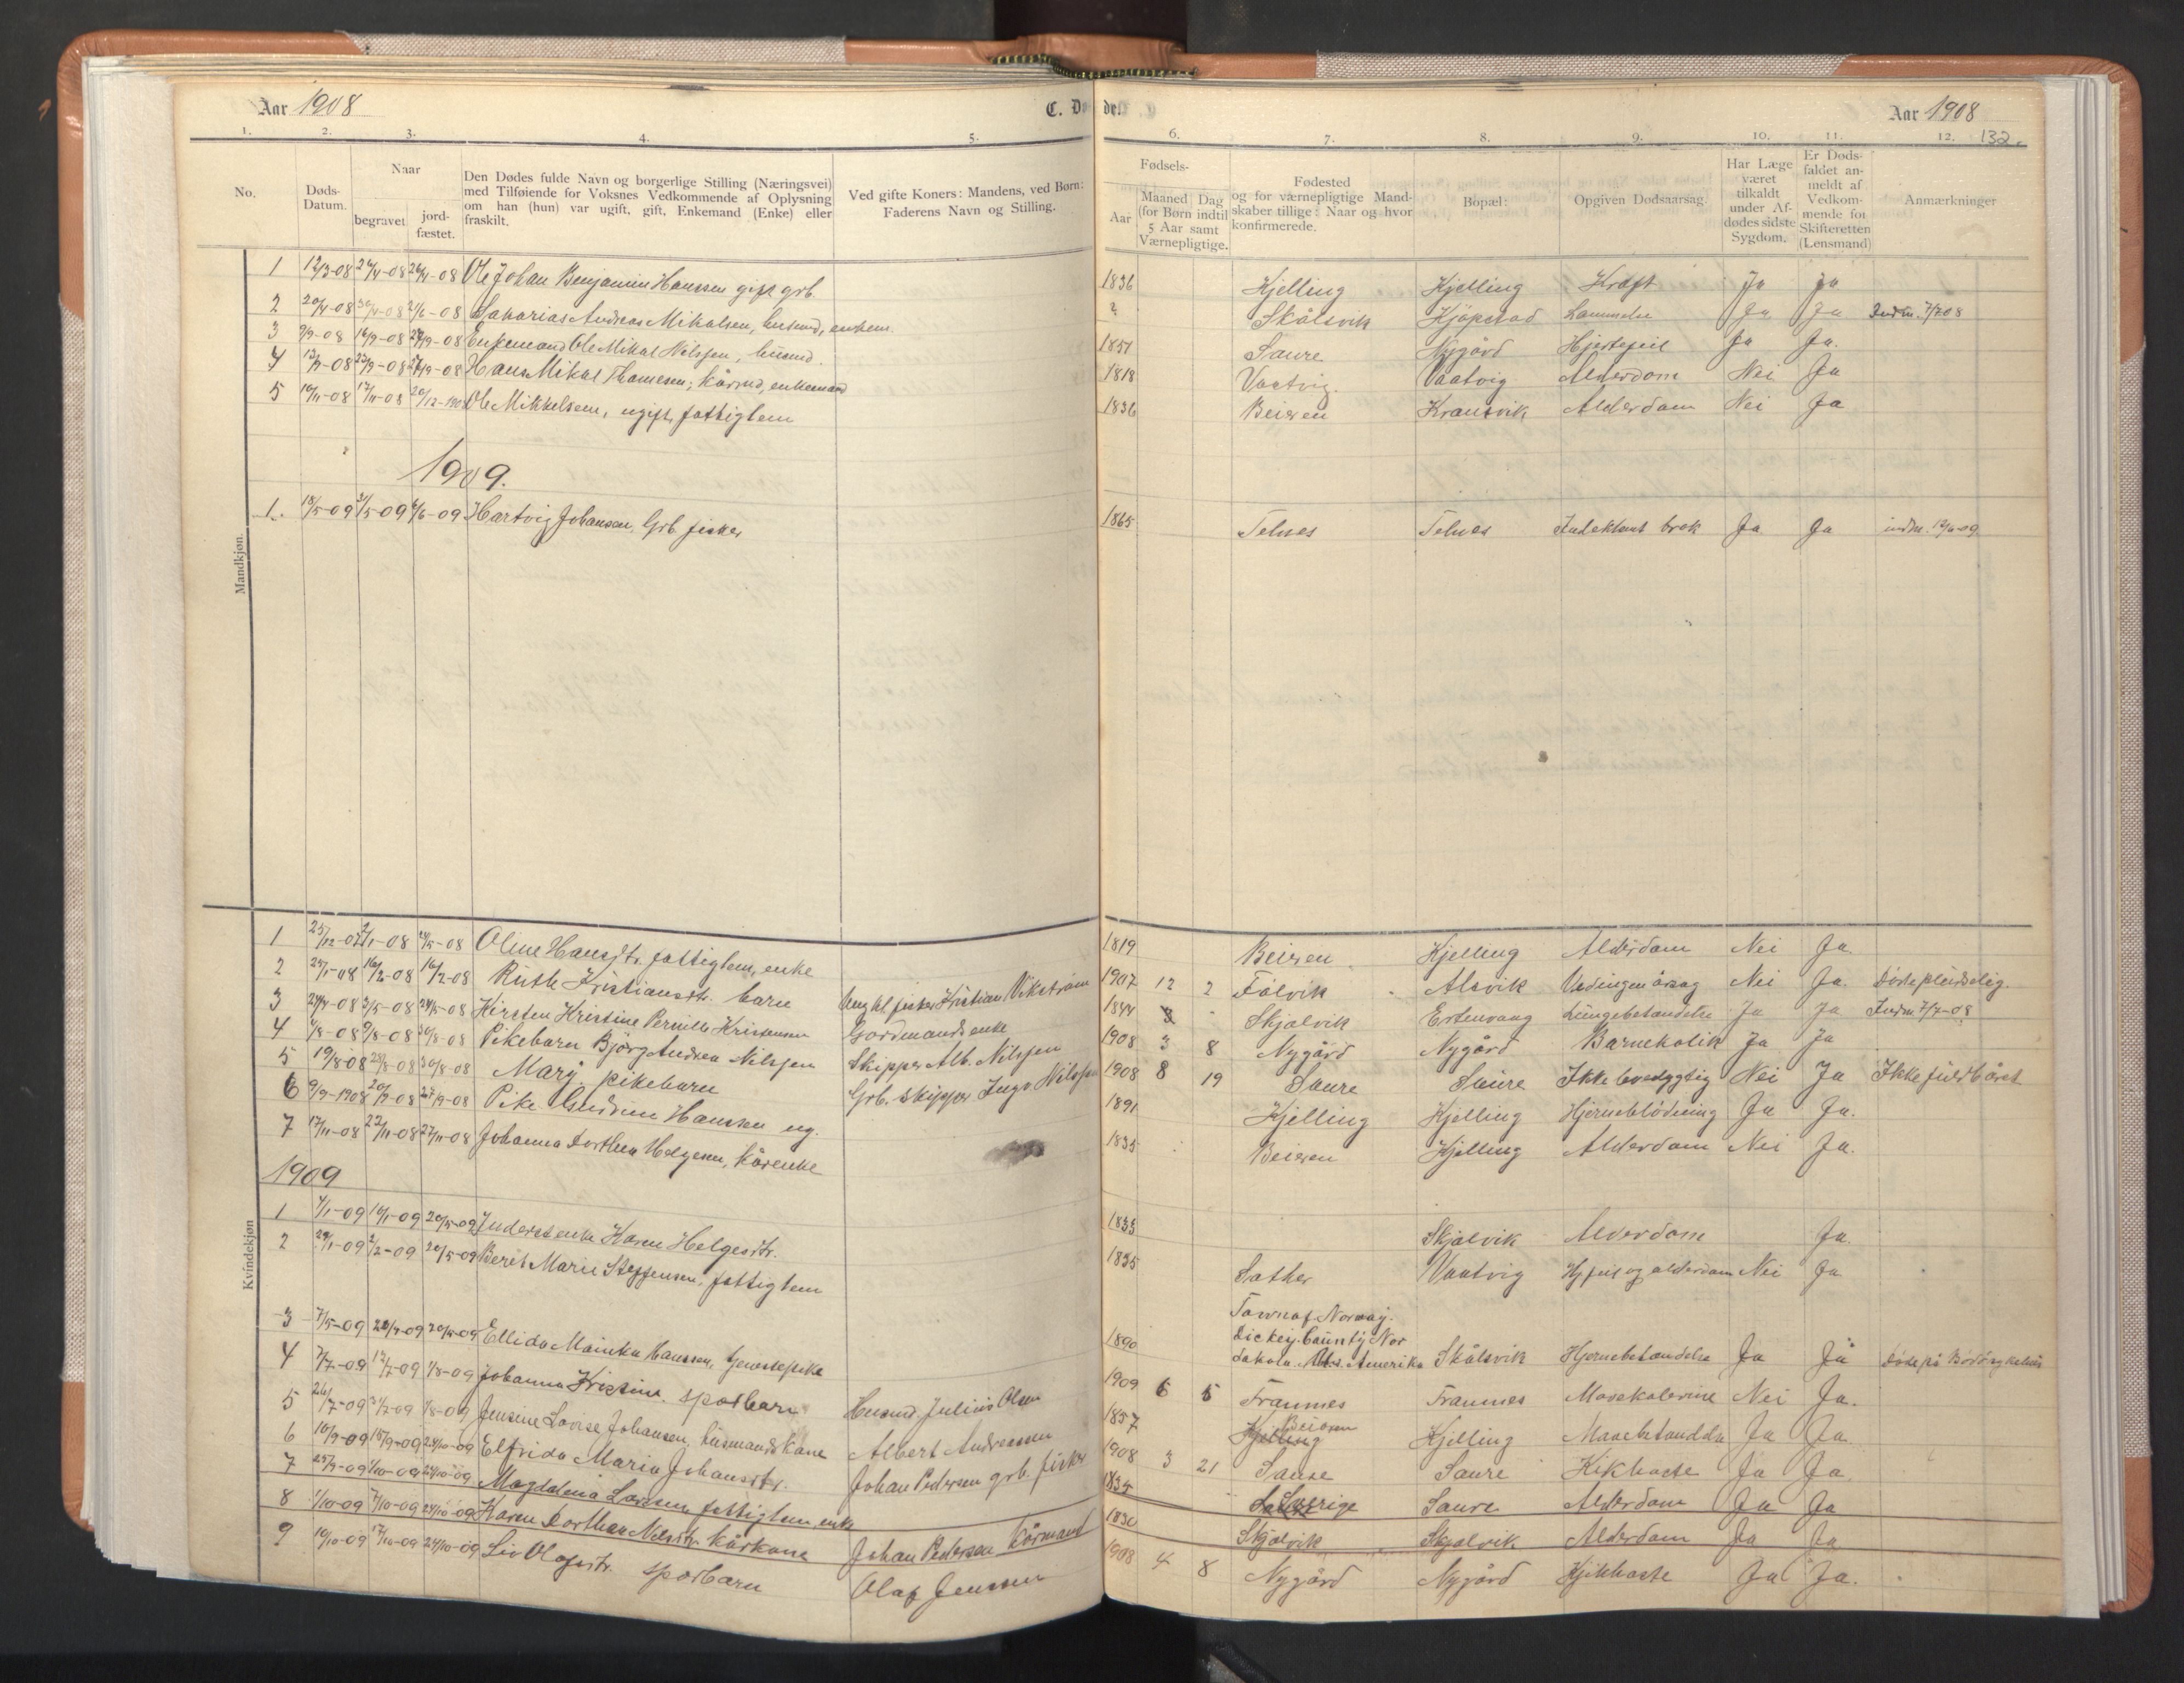 Aar 1908
C. Døde.
Aar 1908
1. 2. 3. 4. 5. 6. 7. 8. 9. 10. 11. 12. 132.
No.
Døds-Datum.
Naar
begravet
jord-fæstet.
Den Dødes fulde Navn og borgerlige Stilling (Næringsvei)
med Tilføiende for Voksnes Vedkommende af Oplysning
om han (hun) var ugift, gift, Enkemand (Enke) eller
fraskilt.
Ved gifte Koners: Mandens, ved Børn:
Faderens Navn og Stilling.
Fødsels-
Aar
Maaned (for Børn indtil 5 Aar samt Værnepligtige.
Dag
Fødested
og for værnepligtige Mand-
skaber tillige: Naar og hvor
konfirmerede.
Bopæl:
Opgiven Dødsaarsag.
Har Læge været tilkaldt under Af-dødes sidste Sygdom.
Er Døds-faldet an-meldt af Vedkom-mende for Skifteretten (Lensmand)
Anmærkninger
Mandkjøn.
1 12/3-08 26/4-08 26/4-08 Ole Johan Benjamin Hanssen gift grb. 1836 Kjelling Kjelling Kræft Ja Ja
2 20/4-08 30/4-08 21/6-08 Sakarias Andreas Mikalsen, husmd, enkem. ? Skålsvik Kjøpstad Lammelse Ja Ja Indm. 7/7 08
3 9/9-08 16/9-08 27/9-08 Enkemand Ole Mikal Nilssen, husmd. 1851 Saure Nygård Hjertefeil Ja Ja.
4 13/9-08 23/9-08 27/9-08 Hans Mikal Thomesen; kårmd, enkemand 1818 Vaatvig. Vaatvig Alderdom Nei Ja
5 10/11-08 17/11-08 20/12-1908 Ole Mikkelsen, ugift, fattiglem 1836 Beieren Kransvik Alderdom Nei Ja
1909.
1. 18/5-09 31/5-09 6/6-09 Hartvig Johansen, Grb. fisker 1865 Telnes Telnes Indeklemt brok Ja Ja indm. 12/6-09
Kvindekjøn
1 25/12-07 2/1-08 24/5-08 Oline Hansdtr. fattiglem, enke 1819 Beieren Kjelling Alderdom Nei Ja.
2 25/1-08 16/2-08 16/2-08 Ruth Kristiansdtr. barn Ungkl. fisker Kristian Vikstrøm 1907 12 2 Følvik Alsvik Ved ingen årsag Nei Ja. Døde pludselig.
3 24/4-08 3/5-08 24/5-08 Kirsten Kristine Pernille Kristensen Gårdmandsenke 1844 Skjælvik Ertenvaag Lungebetændelse Ja Ja Indm 7/7-08
4 4/8-08 9/8-08 30/8-08 Pikebarn Bjørg Andrea Nilssen Skipper Alb. Nilssen 1908 3 8 Nygård Nygård Barnekolik Ja Ja
5 19/8-08 23/8-08 30/8-08 Mary, pikebarn Grb. skipper Ingv. Nilssen 1908 8 19 Saure Saure Ikke levedygtig Nei Ja Ikke fuldbåret
6 9/9-1908 20/9-08 27/9-08 Pike Gudrun Hanssen ug. 1891 Kjelling Kjelling Hjerneblødning Ja Ja.
7 17/11-08 22/11-08 27/11-08 Johanna Dorthea Helgesen, kårenke 1835 Beieren Kjelling Alderdom Nei Ja.
1909
1 4/1-09 10/1-09 20/5-09 Inderstenke Karen Helgesdtr. 1833 Skjælvik Alderdom Ja.
2 24/1-09 2/2-09 20/5-09 Beret Marie Steffensen, fattiglem 1835 Sather Vaatvig Hj.feil og alderdom Nei Ja
3 7/5-09 20/5-09 Ellida Hanssen, tjenestepike 1890 Town of Norway. Dickey. County Nor dakota Amerika Skålsvik Hjernebetændelse Ja Ja Døde på Bodø sykehus
4 7/7-09 12/7-09 1/8-09 Johanna Kristine. spædbarn Husmd. Julius Olsen 1909 6 5 Framnes Framnes Mavekolerine Nei Ja.
5 26/7-09 31/7-09 1/8-09 Jensine Lovise Johansen, husmandskone Albert Andreassen 1857 Kjelling Beieren Kjelling Mavebetændelse Ja Ja
6 10/9-09 15/9-09 24/10-09 Elfrida Maria Johansdtr. Johan Pedersen grb. fisker 1908 3 21 Saure Saure Kikhoste Ja Ja.
7 25/9-09 1/10-09 24/10-09 Magdalena Larssen fattiglem, enke 1834 Sverige Saure Alderdom Ja Ja
8 1/10-09 7/10-09 24/10-09 Karen Dorthea Nilsdtr. kårkone Johan Pedersen kårmand 1830 Skjælvik Skjælvik Alderdom Ja Ja
9 10/10-09 17/10-09 24/10-09 Liv Olafsdtr. spædbarn Olaf Jenssen 1908 4 8 Nygård Nygård Kjikhoste Ja Ja.